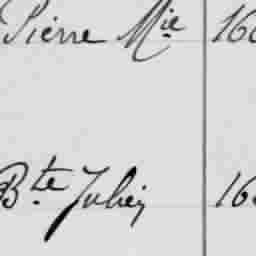 Pierre Mie 166
Bte Julien 16